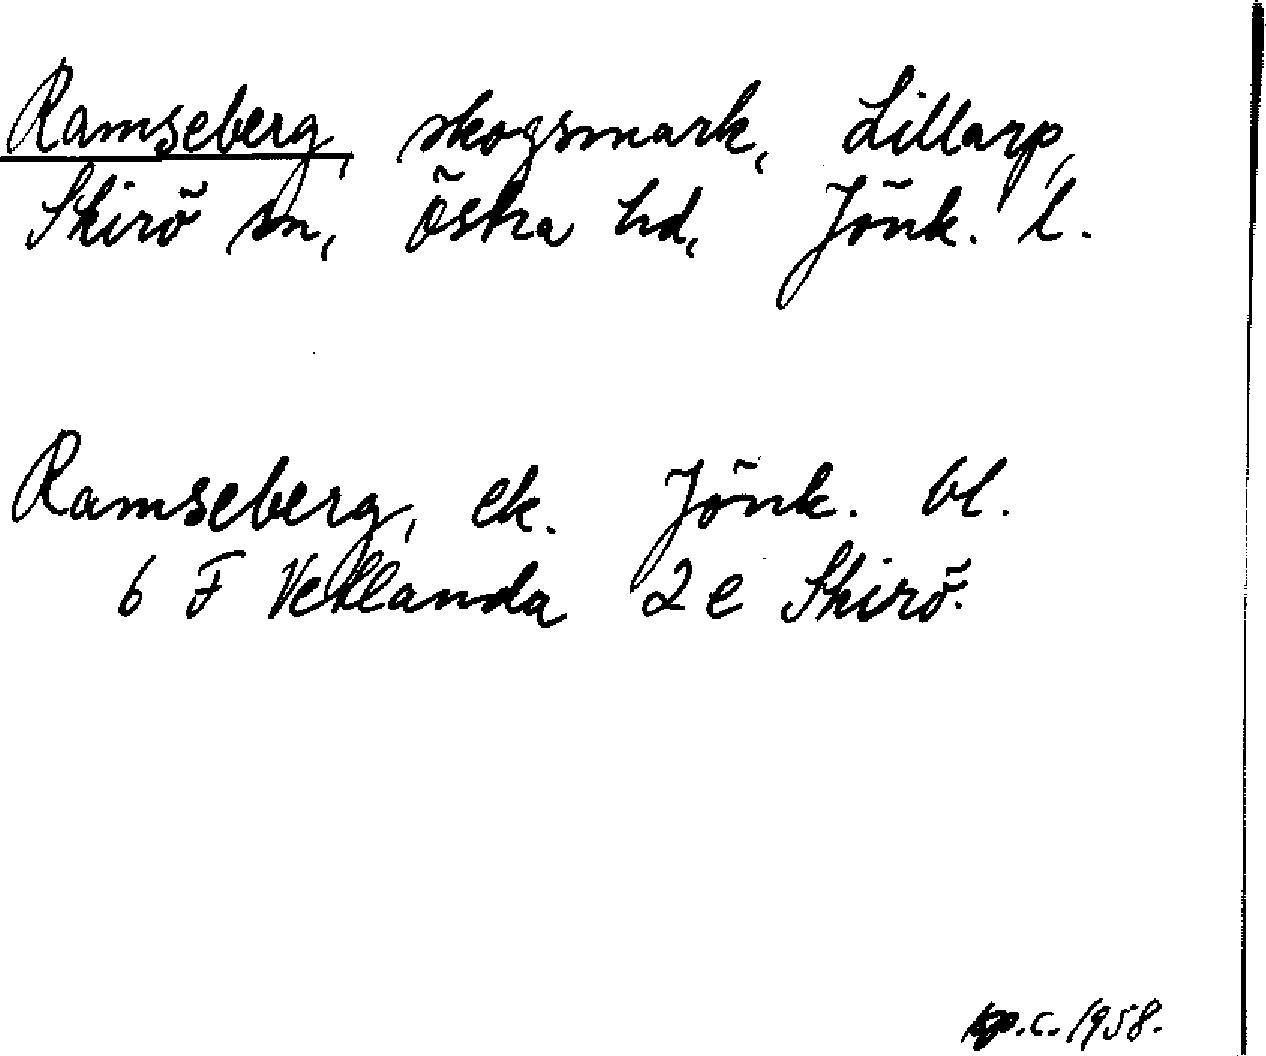 Ramseberg, skogsmark, Lillarp,
Skirö sn, Östra hd, Jönk. l.
Ramseberg, ek. Jönk. bl.
6 F Vetlanda 2 e Skirö.
c. 1958.